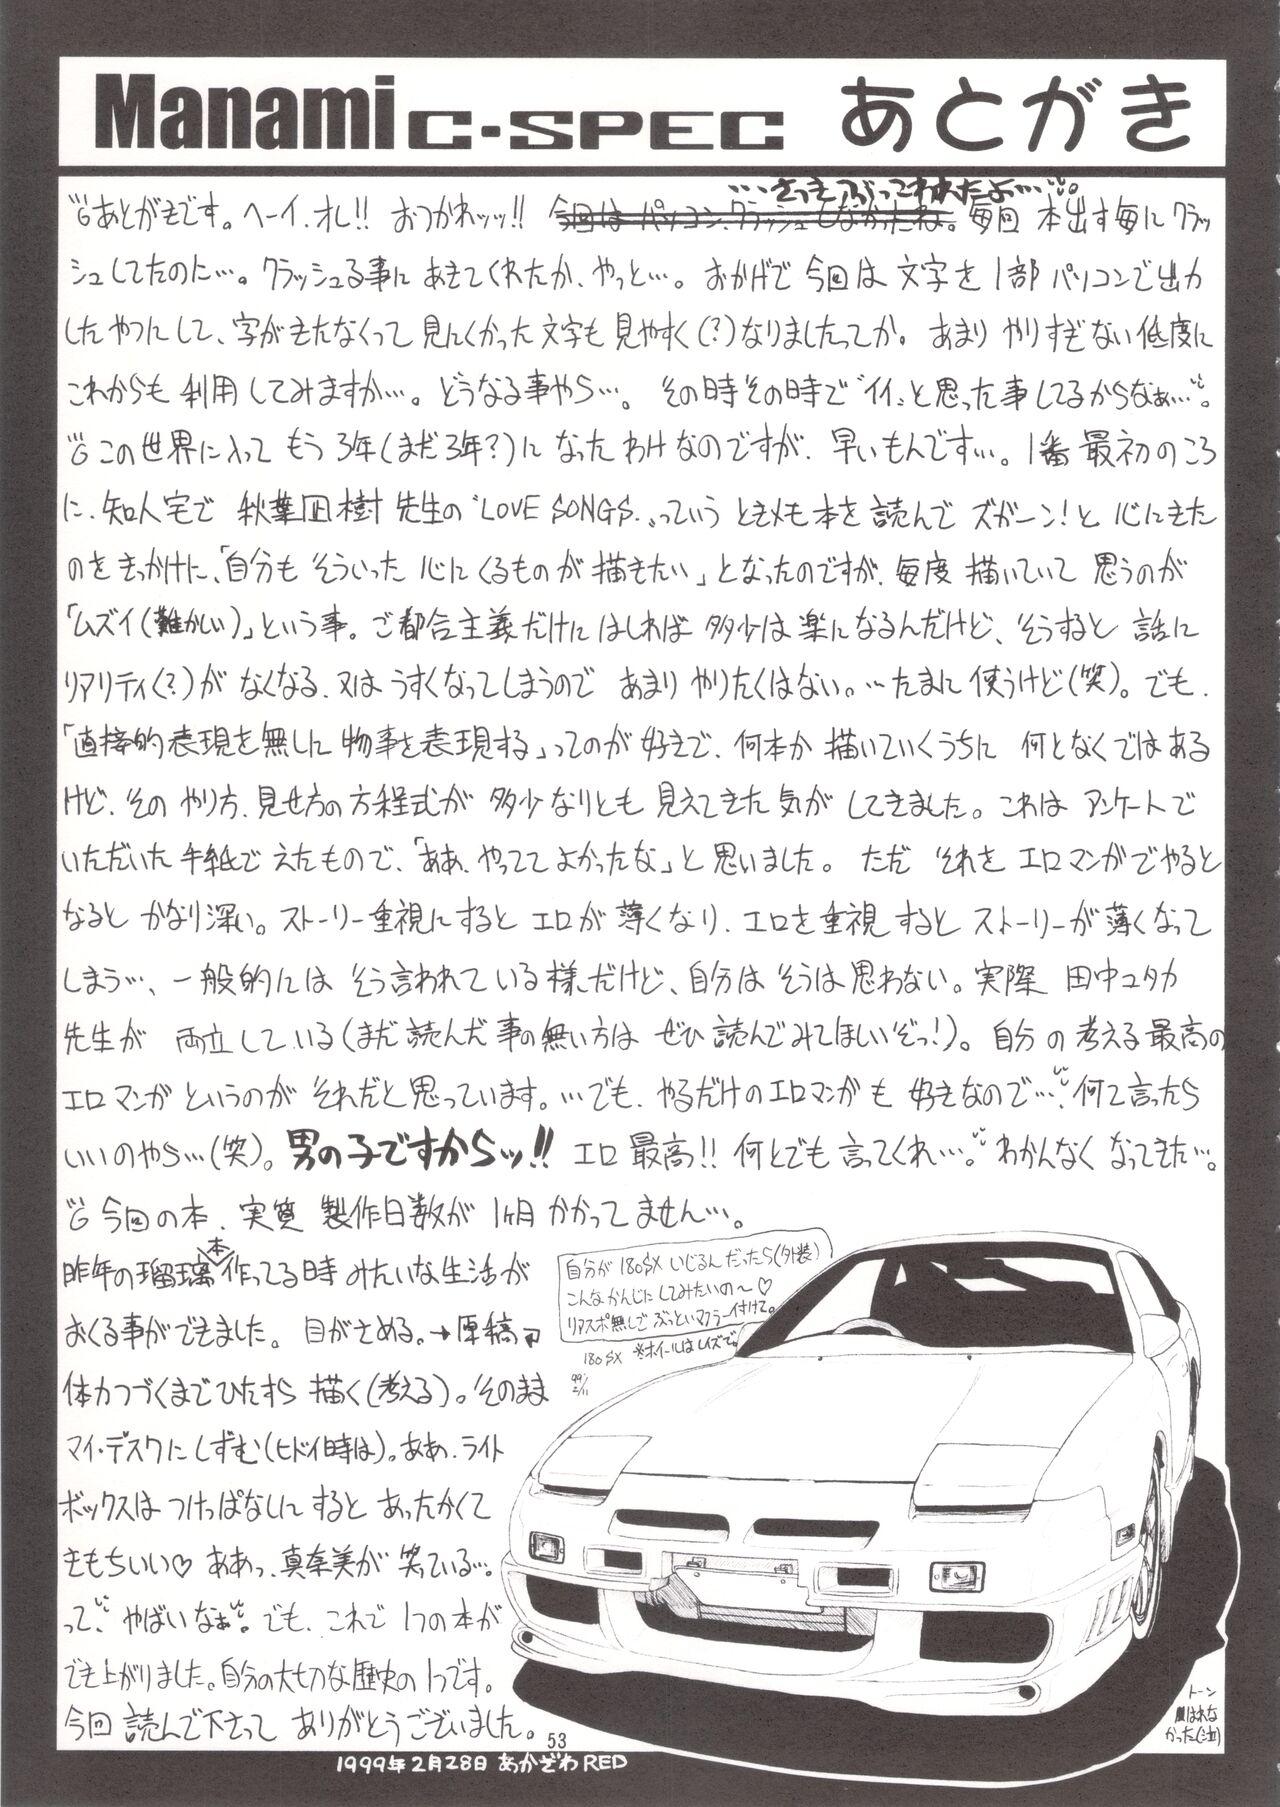 Manami C-SPEC あとがき
…さっきぶってわれたよ…。
あとがきです。ヘーイ、オレ!! おつかれッッ!! 今回はパソコンクラッシュしなかったね。毎回 本出す毎にクラッ
シュしてたのに…。クラッシュる事に あきてくれたか、やっと…。おかげで 今回は 文字を 1部 パソコンで出力
したやつにして、字がきたなくって 見にくかった 文字も 見やすく(?)なりましたってか。あまり やりすぎない低度に
これからも 利用してみますか…。どうなる事やら…。その時その時で“イイ”と思った事してるからなぁ…。
この世界に入って もう3年(まだ3年?)に なったわけなのですが、早いもんです…。1番 最初のころ
に、知人宅で 秋葉凪樹 先生の“LOVE SONGS”っていう ときメモ本を 読んで ズガーン!と 心にきた
のをきっかけに、「自分も そういった 心にくるものが 描きたい」となったのですが、毎度 描いていて 思うのが
「ムズイ(難かしい)」という事。ご都合主義だけに はしれば 多少は 楽になるんだけど、そうすると 話に
リアリティ(?)が なくなる、又は うすくなってしまうので あまり やりたくはない。…たまに 使うけど(笑)。でも、
「直接的表現を無しに 物事を表現する」ってのが 好きで、何本か 描いていくうちに 何となくではある
けど、その やり方、見せ方の方程式が 多少なりとも 見えてきた 気が してきました。これは アンケートで
いただいた 手紙で えたもので、「ああ、やってて よかったな」と 思いました。ただ それを エロマンガでやると
なると かなり深い。ストーリー重視にすると エロが 薄くなり、エロを重視すると ストーリーが 薄くなって
しまう…、一般的には そう言われている様だけど、自分は そうは思わない。実際 田中ユタカ
先生が 両立している(まだ読んだ事の無い方は ぜひ読んでみてほしいぞっ!)。自分の考える最高の
エロマンガというのが それだと思っています。…でも、やるだけのエロマンガも 好きなので…、何て言ったら
いいのやら…(笑)。男の子ですからッ!! エロ 最高!! 何とでも 言ってくれ…。わかんなく なってきた…。
今回の本、実質 製作日数が 1ヶ月 かかってません…。
昨年の瑠璃本作ってる時 みたいな生活が
おくる事ができました。目がさめる。→原稿→
体力つづくまでひたすら 描く(考える)。そのまま
マイ・デスクに しずむ(ヒドイ時は)。ああ、ライト
ボックスは つけっぱなしに すると あったかくて
きもちいい♡ ああっ、真奈美が 笑っている…。
って、やばいなぁ。でも、これで 1つの本が
でき上がりました。自分の大切な歴史の1つです。
今回 読んで下さって ありがとうございました。
自分が 180SX いじるんだったら(外装)
こんなかんじに してみたいの〜♡
リアスポ無しで ぶっといマフラー付けて。
※ホイールはレイズで。
180SX
99'
2/11
トーン
はれな
かった(泣)
53
1999年2月28日 あかざわRED